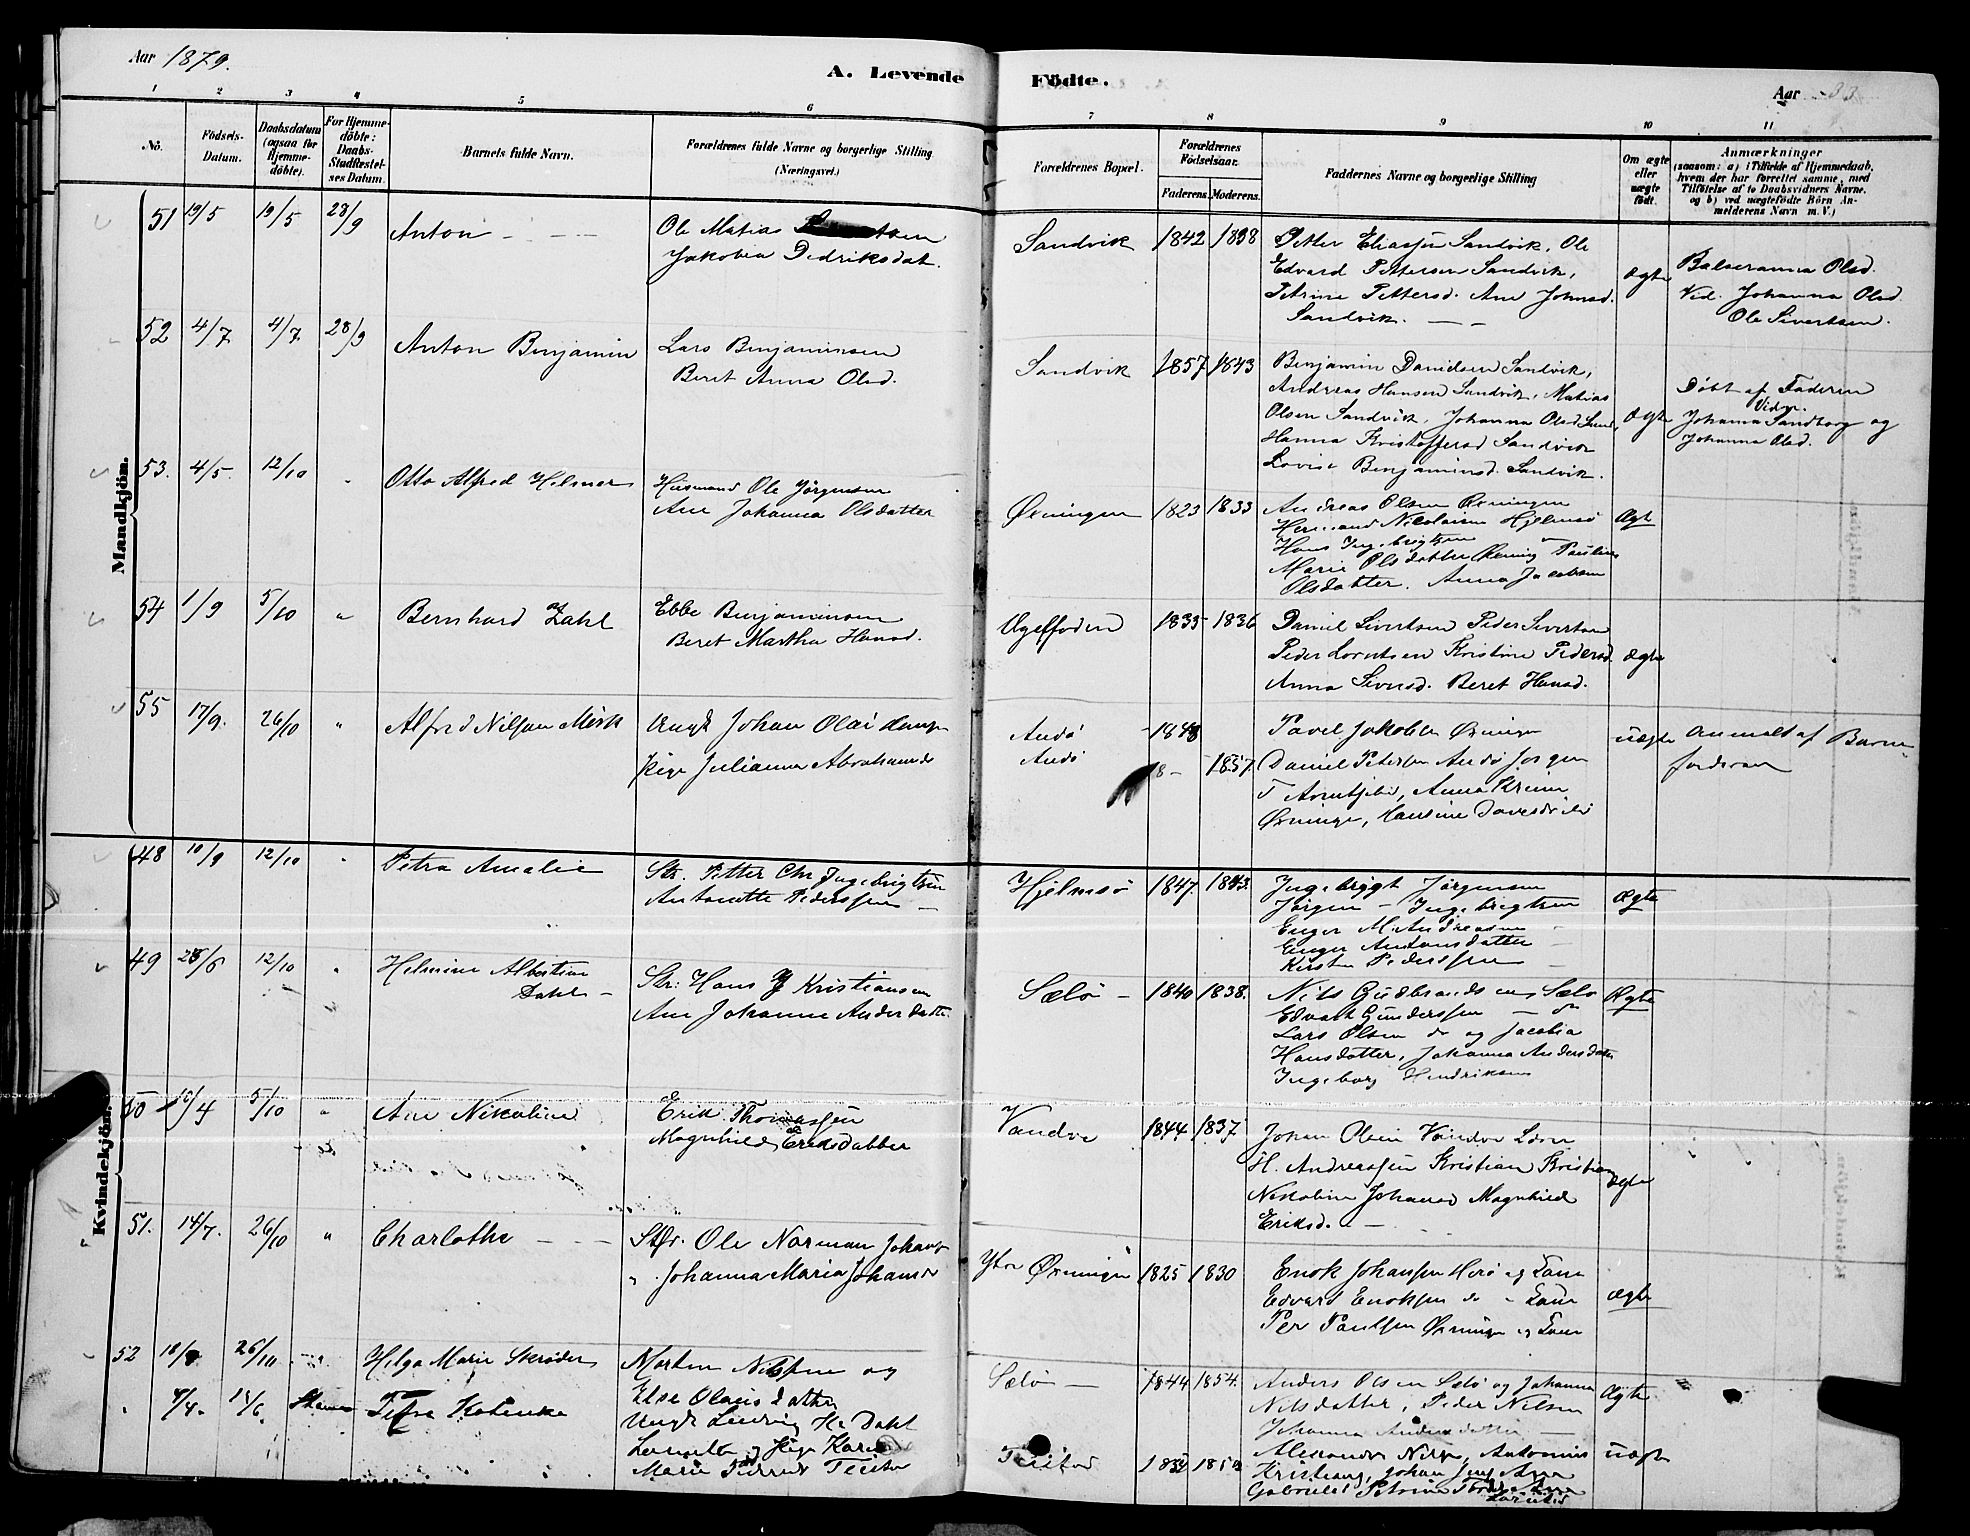 Aar 1879.
A. Levende Födte.
Aar 33
1 2 3 4 5 6 7 8 9 10 11
No.
Födsels-Datum.
Daabsdatum (ogsaa for Hjemme-döbte).
For Hjemme-döbte: Daabs-Stadfæstel-ses Datum.
Barnets fulde Navn.
Forældrenes fulde Navne og borgerlige Stilling (Næringsvei.)
Forældrenes Bopæl.
Forældrenes Födselsaar.
Faderens. Moderens.
Faddernes Navne og borgerlige Stilling
Om ægte eller uægte födt.
Anmærkninger
(saasom: a) i Tilfælde af Hjemmedaab, hvem der har forrettet samme, med Tilföielse af to Daabsvidners Navne, og b) ved uægtefödte Börn An-melderens Navn m. V.)
Mandkjön.
51 19/5 19/5 28/9 Anton
Ole Matias
Jakobia Dedriksdat.
Sandvik 1842 1838
Petter Eliassen Sandvik, Ole
Edvard Pettersen Sandvik,
Petrine Pettersd. Ane Johnsd.
Sandvik.
ægte
Balseranna Olsd.
Vid. Johanna Olsd.
Ole Sivertsen.
52 4/7 4/7 28/9 Anton Benjamin
Lars Benjaminsen
Beret Anna Olsd.
Sandvik 1857 1843
Benjamin Danielsen Sandvik,
Andreas Hansen Sandvik, Matias
Olsen Sandvik, Johanna Olsd Sand,
Hanna Kristoffersd Sandvik
Lovise Benjaminsd. Sandvik.
ægte
Döbt af Faderen
Vidn.
Johanna Sandborg og
Johanna Olsd.
53. 4/5. 12/10 Otto Alfred Helmer
Husmand Ole Jörgensen
Ane Johanna Olsdatter
Öxningen 1823 1833
Andreas Olsen Öxningen
Hermand Nicolaisen Hjelmsö
Hans Ingebrigtsen
Marie Olsdatter Öxning Pauline
Olsdatter. Anna Jacobsen
Ægt
54 1/9 5/10 " Bernhard Zahl
Ebbe Benjaminsen
Beret Martha Hansd.
1835 1836
Daniel Sivertsen Peder Sivertsen
Peder Lorntsen Kristine Pedersd.
Anna Siversd. Beret Hansd.
ægte
55 17/9. 26/10 " Alfred Nilsan Mörk
Ungk Johan Olai
Pige Julianna Abrahamsd
Andö 1848
Andö 1857.
Pavel Jakobsen Öxninge
Daniel Petersen Andö Jorgen
Anna
Öxninge, Hansine
uægte
Anmeldt af Barne
fordsran
Kvindekjön.
48 10/9 12/10 Petra Amalie
Str. Petter Chr Ingebrigtsen
Antonette Pederssen
Hjelmsö 1847. 1843.
Ingebrigt Jörgensen
Jörgen - Ingebrigtsen
Enger M. Andreasen
Enger Antonsdatter
Kirsten Pederssen
Ægte
49 28/6 12/10 " Helmine Albertine
Dahl -
Str: Hans J Kristiansen
Ane Johanne Andersdatte.
Sælö - 1840 1838.
Nils Gudbrandsen Sælö
Edvart Gunderssen - do
Lars Olsen do og Jacobia
Hansdatter, Johanna Andersdatter
Ingeborg Hendriksen
Ægte
50 16/4 5/10 " Ane Nikoline
Erik Thomassen
Magnhild Eriksdatter
Vandve 1844 1837
Johan Olsen Vandve Lorn
H. Andreassen Kristian Kristian
Nikoline Johansd Magnhild
Eriksd.
ægte
51. 14/7. 26/10 " Charlothe
Str. Ole Norman Johans
" Johanna Maria Johansd
Ytre Öxningen 1825 1830
Enok Johansen Herö og Kone
Edvard Enoksen do - Kone
Per Paulsen Öxninge og Kone
ægte
52 18/9 26/10 Helga Marie Skröder
Morten Nilssen og
Else Olausdatter
Sælö - 1844 1854.
Anders Olsen Sælö og Johanna
Nilsdatter, Peder Nilsen
Johanna Andersdatter
Ægte
" 4/4. 15/6 Petra Katinka
Ungk Ludvig Hr Dahl
og Pige Karen
Marie Pedersd
1850
Alexander Nilss, Antonius
Kristians, Johan Jens Ane
Petrine
uægte